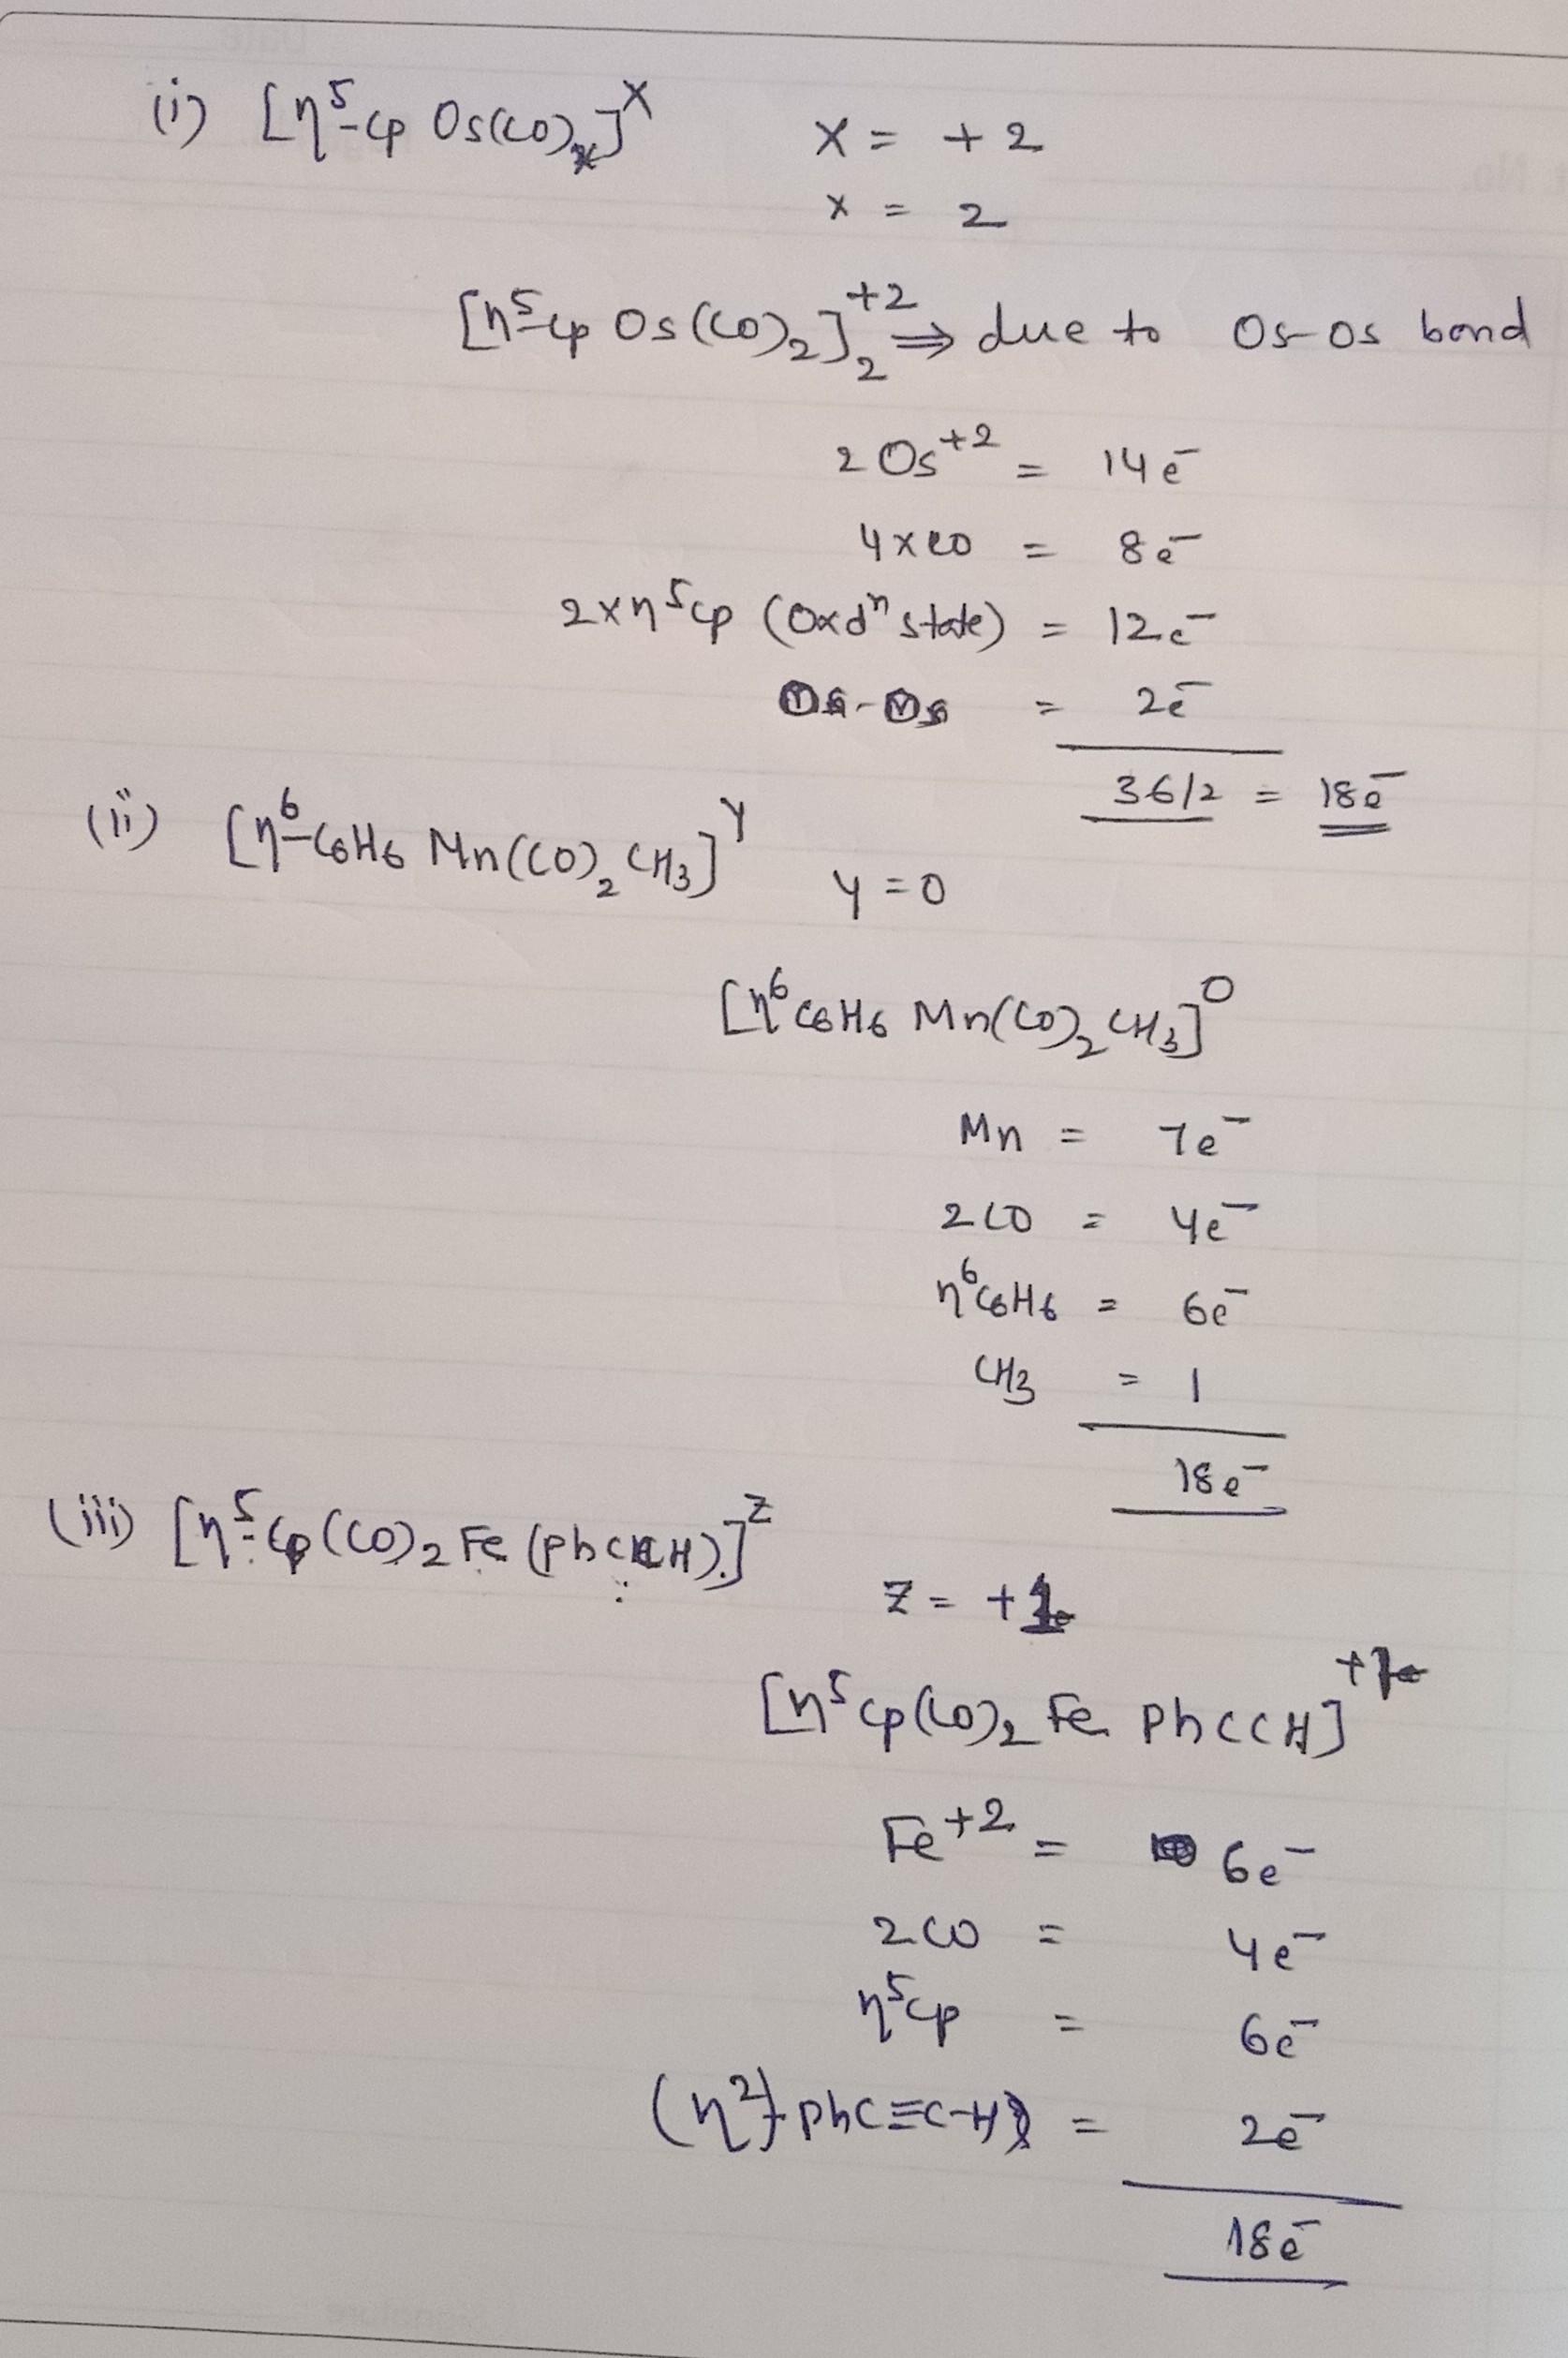 (i) [η⁵-Cp Os(CO)x]^X X = +2
x = 2
[η⁵-Cp Os(CO)₂]₂⁺² ⇒ due to Os-Os bond
2 Os⁺² = 14e⁻
4×CO = 8e⁻
2×η⁵Cp (Oxdⁿ state) = 12e⁻
Os-Os = 2e⁻
36/2 = 18e⁻
(ii) [η⁶-C6H6 Mn(CO)₂ CH₃]^Y
y = 0
[η⁶C6H6 Mn(CO)₂ CH₃]⁰
Mn = 7e⁻
2CO = 4e⁻
η⁶C6H6 = 6e⁻
CH3 = 1
18e⁻
(iii) [η⁵-Cp(CO)₂ Fe (PhCCH)]^Z
Z = +1
[η⁵Cp(CO)₂ Fe PhCCH]⁺¹
Fe⁺² = 6e⁻
2CO = 4e⁻
η⁵Cp = 6e⁻
(η²)-PhC≡C-H = 2e⁻
18e⁻